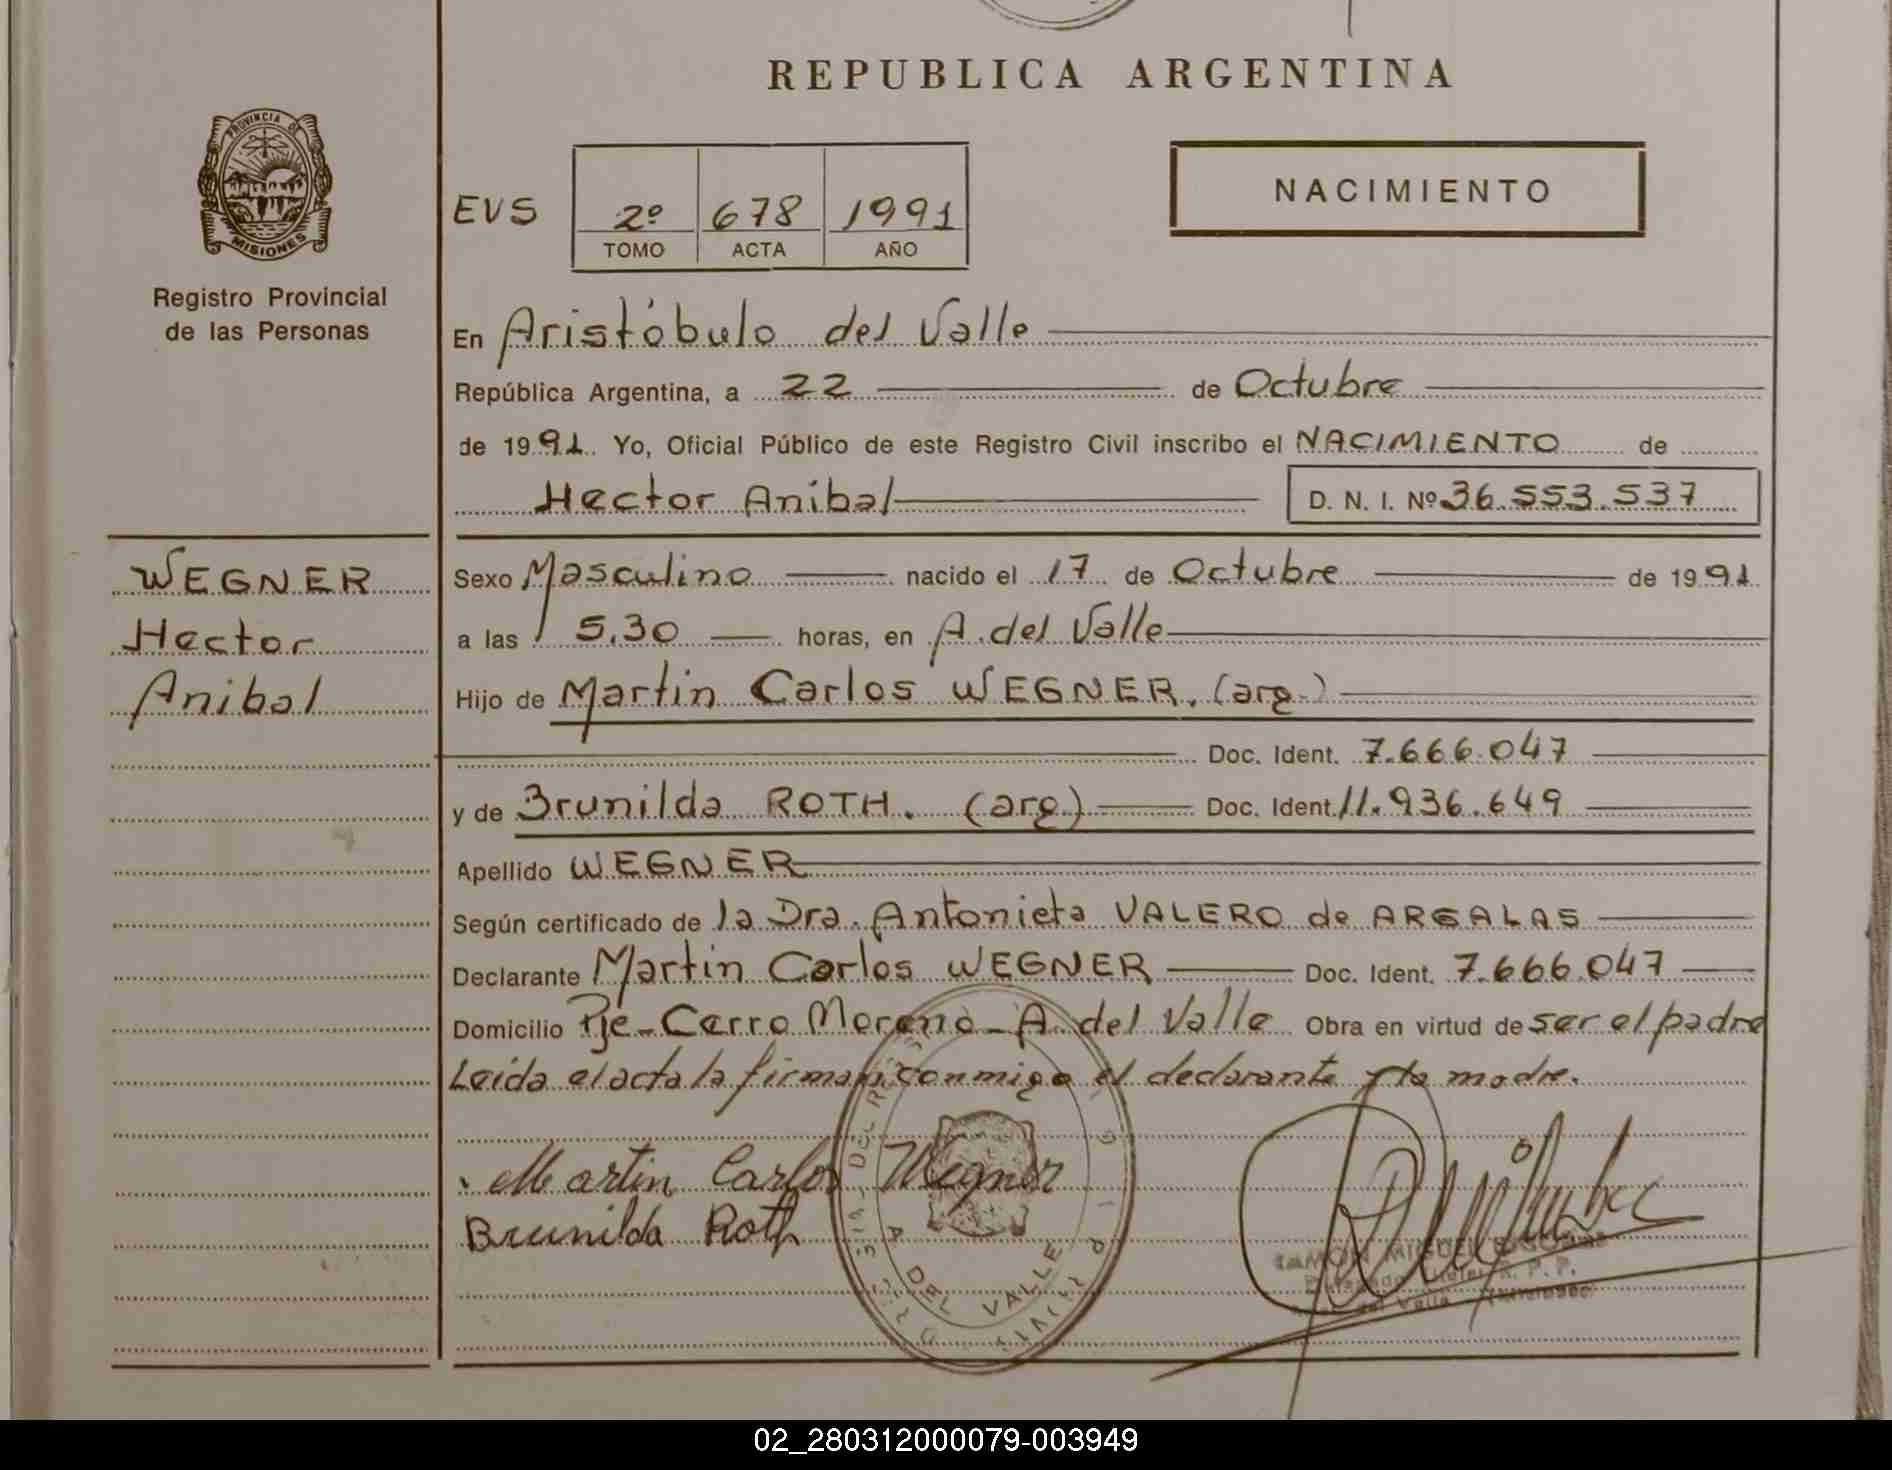 REPUBLICA ARGENTINA
PROVINCIA DE
MISIONES
Registro Provincial
de las Personas
EVS 2º 678 1991
TOMO ACTA AÑO
NACIMIENTO
En Aristóbulo del Valle
República Argentina, a 22 de Octubre
de 1991. Yo, Oficial Público de este Registro Civil inscribo el NACIMIENTO de
Hector Anibal D. N. I. Nº 36.553.537
WEGNER
Hector
Anibal
Sexo Masculino nacido el 17 de Octubre de 1991
a las 5,30 horas, en A. del Valle
Hijo de Martin Carlos WEGNER. (arg.)
Doc. Ident. 7.666.047
y de Brunilda ROTH. (arg.) Doc. Ident. 11.936.649
Apellido WEGNER
Según certificado de la Dra. Antonieta VALERO de ARGALAS
Declarante Martin Carlos WEGNER Doc. Ident. 7.666.047
Domicilio Pje. Cerro Moreno - A. del Valle Obra en virtud de ser el padre
Leída el acta la firman conmigo el declarante y la madre.
Martin Carlos Wegner
Brunilda Roth
DEL VALLE
RAMON MIGUEL
R. P. P.
del Valle
02_280312000079-003949